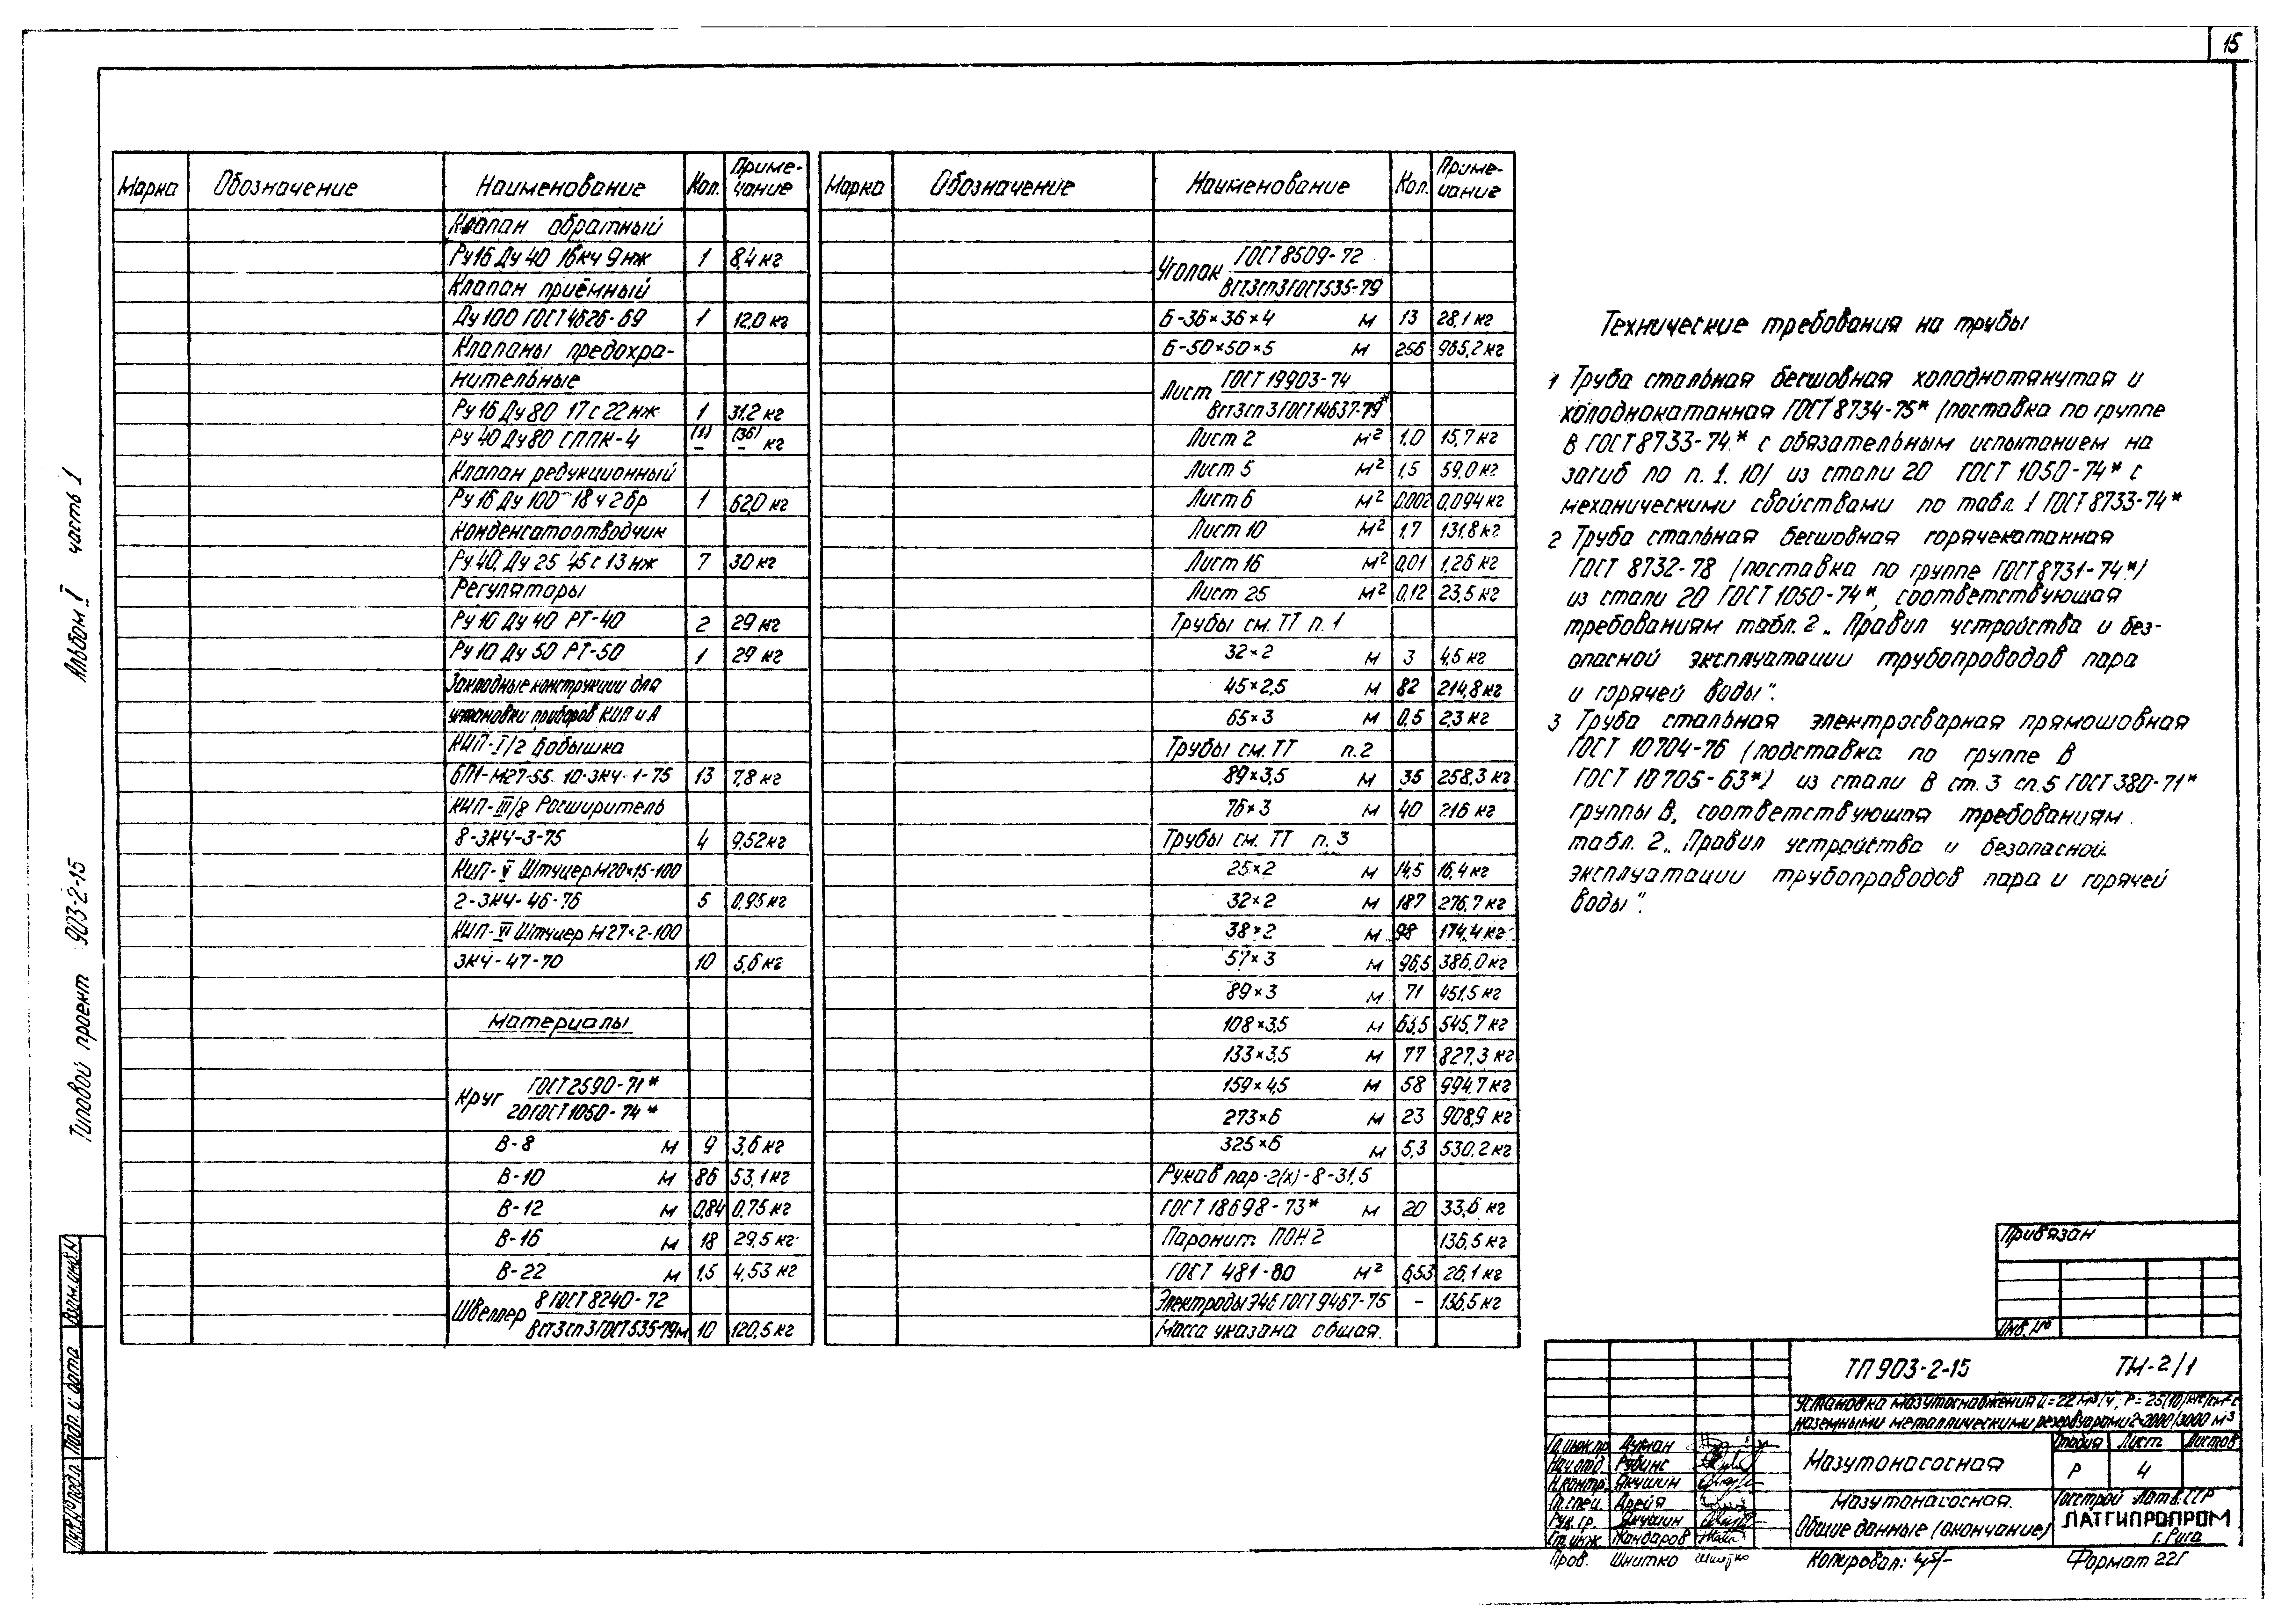 15
Марка Обозначение Наименование Кол. Приме-чание
Клапан обратный
Ру16 Ду 40 16кч 9нж 1 8,4 кг
Клапан приёмный
Ду 100 ГОСТ 4626-69 1 12,0 кг
Клапаны предохра-
нительные
Ру 16 Ду 80 17с 22нж 1 31,2 кг
Ру 40 Ду 80 СППК-4 (1) – (36) – кг
Клапан редукционный
Ру 16 Ду 100 18ч 2бр 1 62,0 кг
Конденсатоотводчик
Ру 40, Ду 25 45с 13нж 7 30 кг
Регуляторы
Ру 10 Ду 40 РТ-40 2 29 кг
Ру 10 Ду 50 РТ-50 1 29 кг
Закладные конструкции для
установки приборов КИП и А
КИП-I/2 Бобышка
БП1-М27-55 10-ЗКЧ-1-75 13 7,8 кг
КИП-III/8 Расширитель
8-ЗКЧ-3-75 4 9,52кг
КИП-V Штуцер М20×1,5-100
2-ЗКЧ-46-76 5 0,95кг
КИП-VI Штуцер М27×2-100
ЗКЧ-47-70 10 5,6 кг
Материалы
Круг ГОСТ 2590-71*
20 ГОСТ 1050-74*
В-8 м 9 3,6 кг
В-10 м 86 53,1 кг
В-12 м 0,84 0,75 кг
В-16 м 18 29,5 кг
В-22 м 1,5 4,53 кг
Швеллер 8 ГОСТ 8240-72
Вст3сп3 ГОСТ 535-79 м 10 120,5 кг
Марка Обозначение Наименование Кол. Приме-чание
Уголок ГОСТ 8509-72
Вст3сп3 ГОСТ 535-79
Б-36×36×4 м 13 28,1 кг
Б-50×50×5 м 256 965,2 кг
Лист ГОСТ 19903-74
Вст3сп3 ГОСТ 14637-79*
Лист 2 м² 1,0 15,7 кг
Лист 5 м² 1,5 59,0 кг
Лист 6 м² 0,002 0,094 кг
Лист 10 м² 1,7 131,8 кг
Лист 16 м² 0,01 1,26 кг
Лист 25 м² 0,12 23,5 кг
Трубы см. ТТ п.1
32×2 м 3 4,5 кг
45×2,5 м 82 214,8 кг
65×3 м 0,5 2,3 кг
Трубы см. ТТ п.2
89×3,5 м 35 258,3 кг
76×3 м 40 216 кг
Трубы см. ТТ п.3
25×2 м 14,5 16,4 кг
32×2 м 187 276,7 кг
38×2 м 98 174,4 кг
57×3 м 96,5 386,0 кг
89×3 м 71 451,5 кг
108×3,5 м 65,5 545,7 кг
133×3,5 м 77 827,3 кг
159×4,5 м 58 994,7 кг
273×6 м 23 908,9 кг
325×6 м 5,3 530,2 кг
Рукав пар-2(х)-8-31,5
ГОСТ 18698-73* м 20 33,6 кг
Паронит ПОН2 136,5 кг
ГОСТ 481-80 м² 6,53 26,1 кг
Электроды Э46 ГОСТ 9467-75 – 136,5 кг
Масса указана общая.
Технические требования на трубы
1 Труба стальная бесшовная холоднотянутая и
холоднокатанная ГОСТ 8734-75* (поставка по группе
В ГОСТ 8733-74* с обязательным испытанием на
загиб по п. 1. 10) из стали 20 ГОСТ 1050-74* с
механическими свойствами по табл. 1 ГОСТ 8733-74*
2 Труба стальная бесшовная горячекатанная
ГОСТ 8732-78 (поставка по группе ГОСТ 8731-74*)
из стали 20 ГОСТ 1050-74*, соответствующая
требованиям табл. 2 „Правил устройства и без-
опасной эксплуатации трубопроводов пара
и горячей воды".
3 Труба стальная электросварная прямошовная
ГОСТ 10704-76 (подставка по группе В
ГОСТ 10705-63*) из стали В ст. 3 сп. 5 ГОСТ 380-71*
группы В, соответствующая требованиям
табл. 2 „Правил устройства и безопасной
эксплуатации трубопроводов пара и горячей
воды".
Альбом I часть 1
Типовой проект 903-2-15
Взам. инв. №
Подп. и дата
Инв. № подл.
Привязан
Инв. №
ТП 903-2-15 ТМ-2/1
Установка мазутоснабжения Q=22 м³/ч, Р=25(10) кгс/см² с
наземными металлическими резервуарами 2×2000/3000 м³
Гл. инж. пр. Дукман
Нач. отд. Рубинс
Н. контр. Якушин
Гл. спец. Дрейя
Рук. гр. Якушин
Ст. инж. Жандаров
Пров. Шнитко
Мазутонасосная
Стадия Лист Листов
Р 4
Мазутонасосная.
Общие данные (окончание)
Госстрой Латв. ССР
ЛАТГИПРОПРОМ
г. Рига
Копировал: Формат 22Г